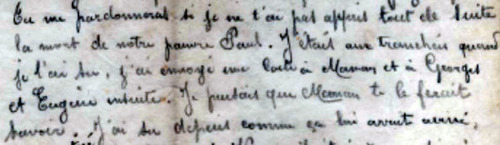 Tu me pardonneras si je ne t'ai pas appris tout de suite
la mort de notre pauvre Paul. J'étais aux tranchées quand
je l'ai su, j'ai envoyé une carte à Maman et à Georges
et Eugène ensuite. Je pensais que Maman te le ferait
savoir. J'ai su depuis comme ça lui avait